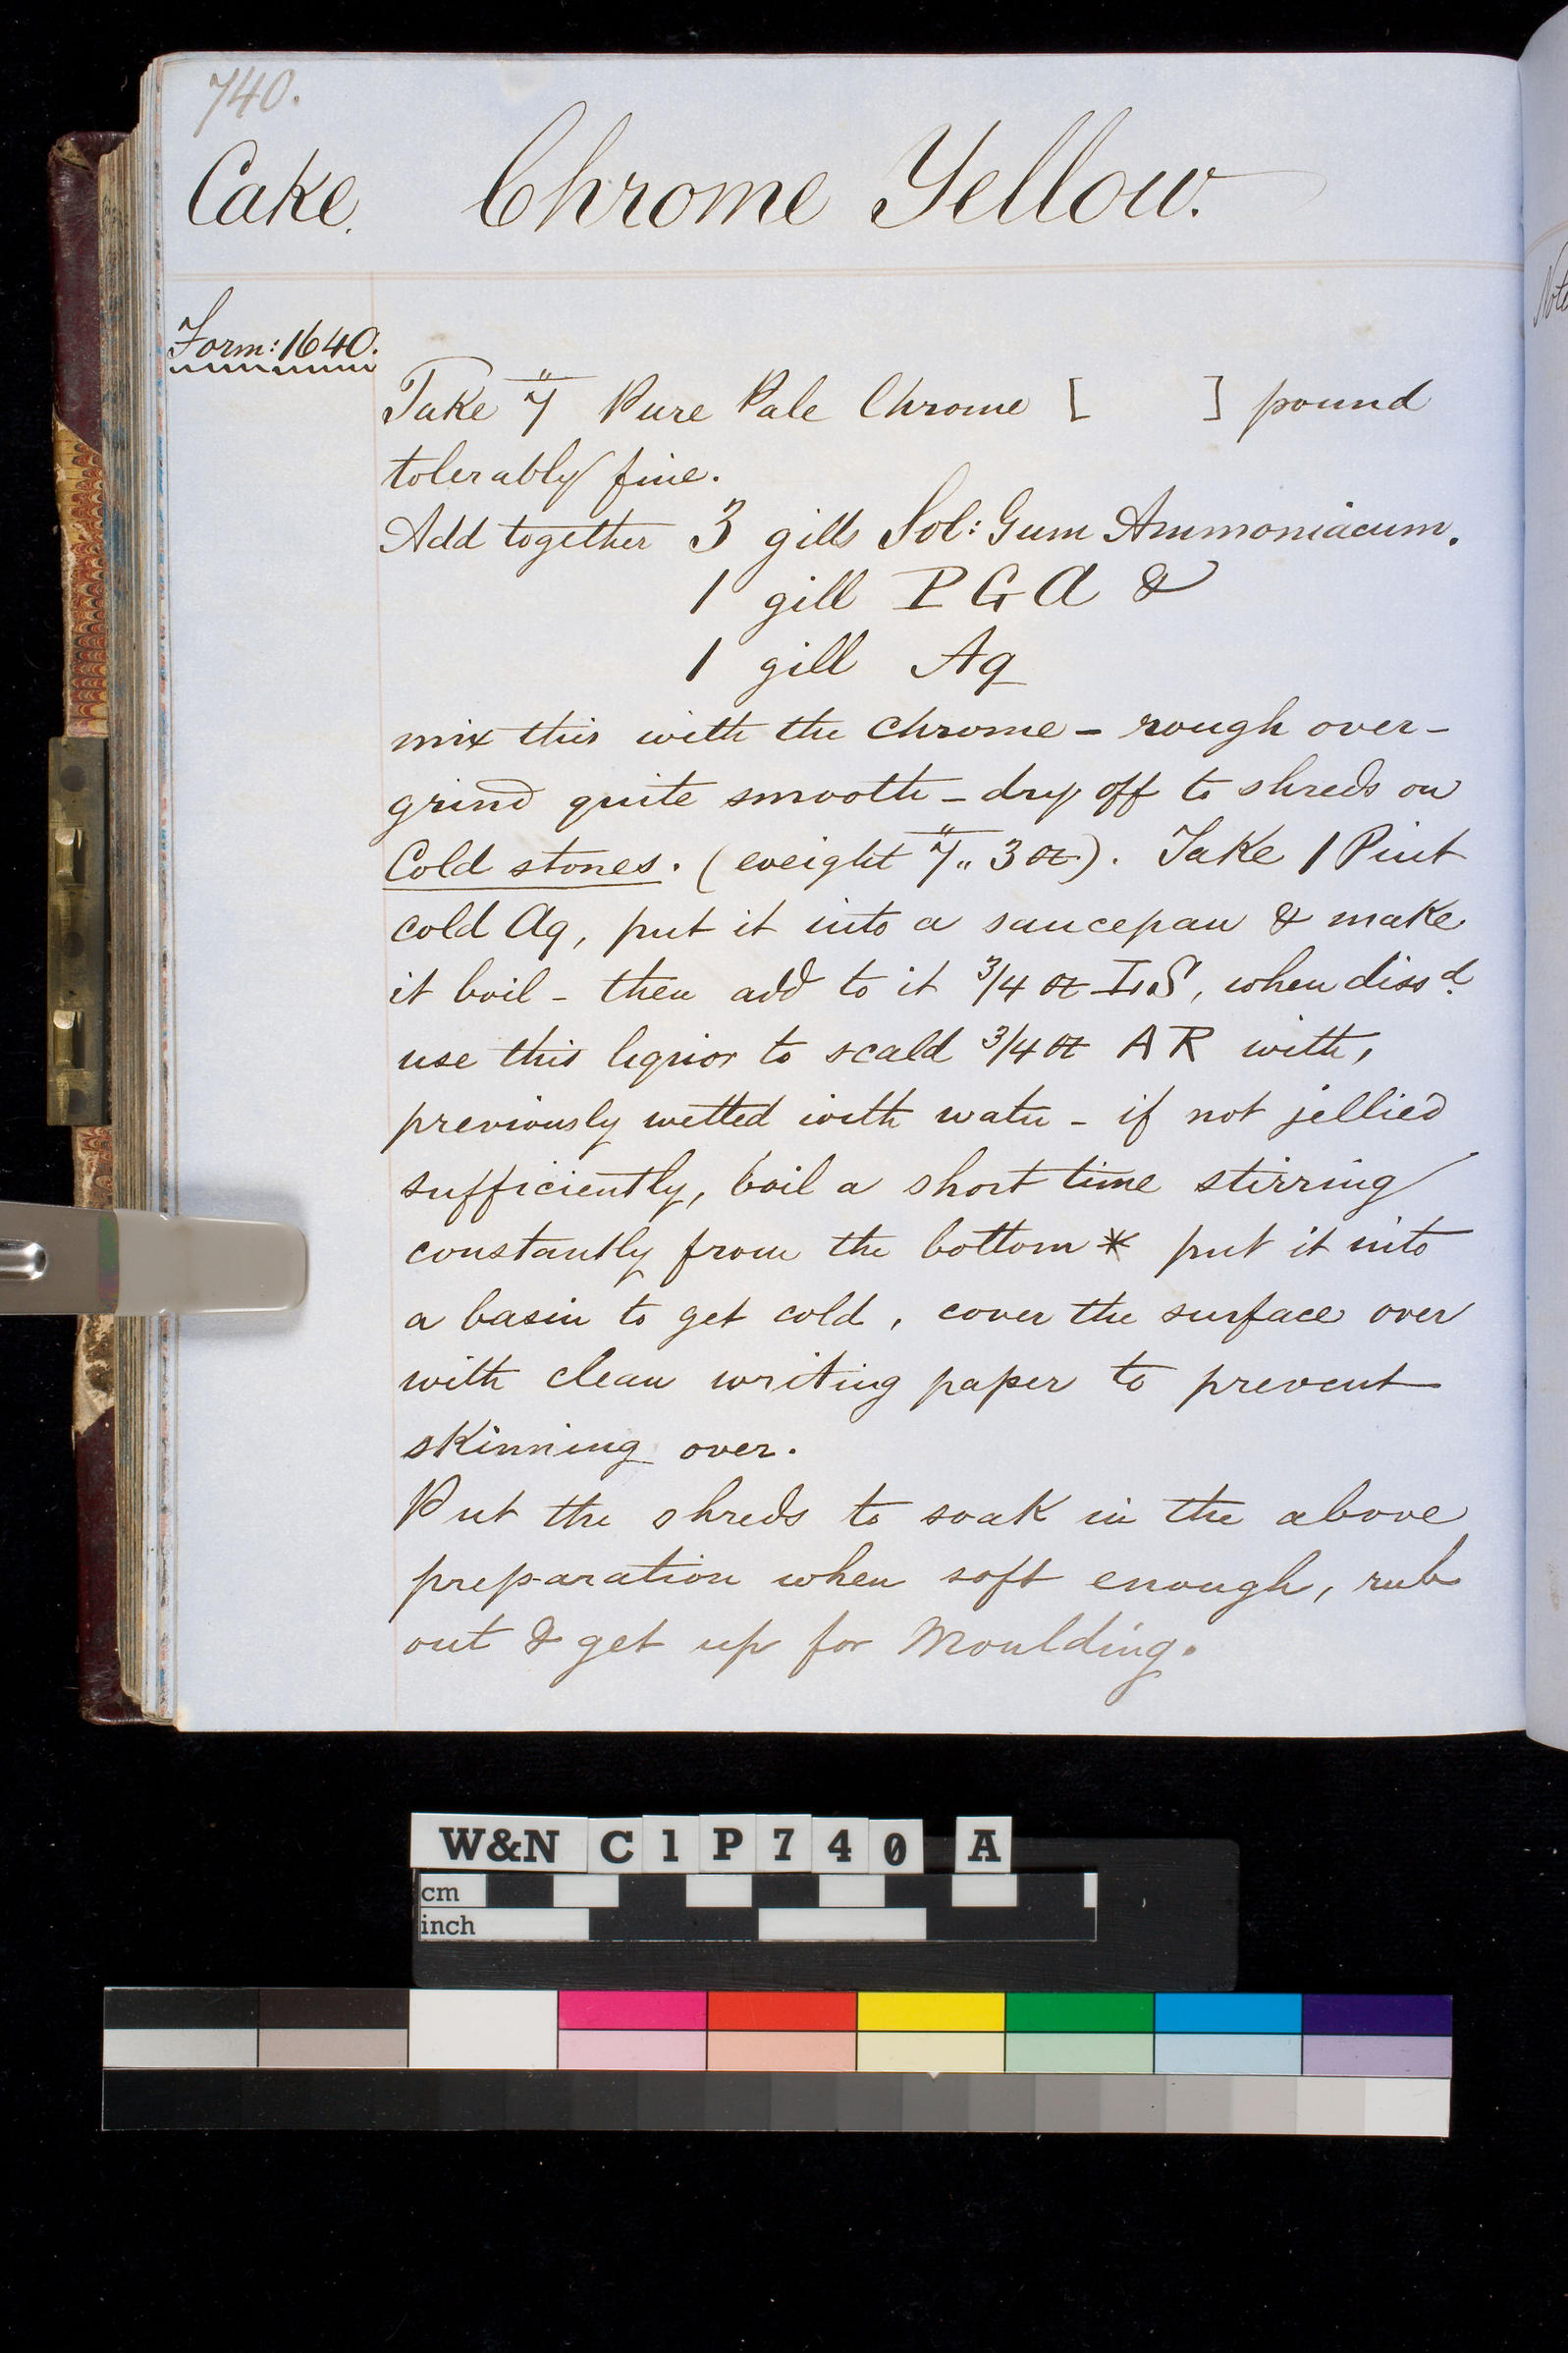 740.
Cake. Chrome Yellow.
Form: 1640.
Take 7" Pure Pale Chrome [ ] pound
tolerably fine.
Add together 3 gills Sol: Gum Ammoniacum.
1 gill P G A &
1 gill Aq
mix this with the chrome - rough over -
grind quite smooth - dry off to shreds on
Cold stones. (weight 7" „ 3 oz). Take 1 Pint
cold Aq, put it into a saucepan & make
it boil - then add to it 3/4 oz IS, when dissd.
use this liquor to scald 3/4 oz AR with,
previously wetted with water - if not jellied
sufficiently, boil a short time stirring
constantly from the bottom * put it into
a basin to get cold, cover the surface over
with clean writing paper to prevent
skinning over.
Put the shreds to soak in the above
preparation when soft enough, rub
out & get up for Moulding.
W&N C1P740 A
cm
inch